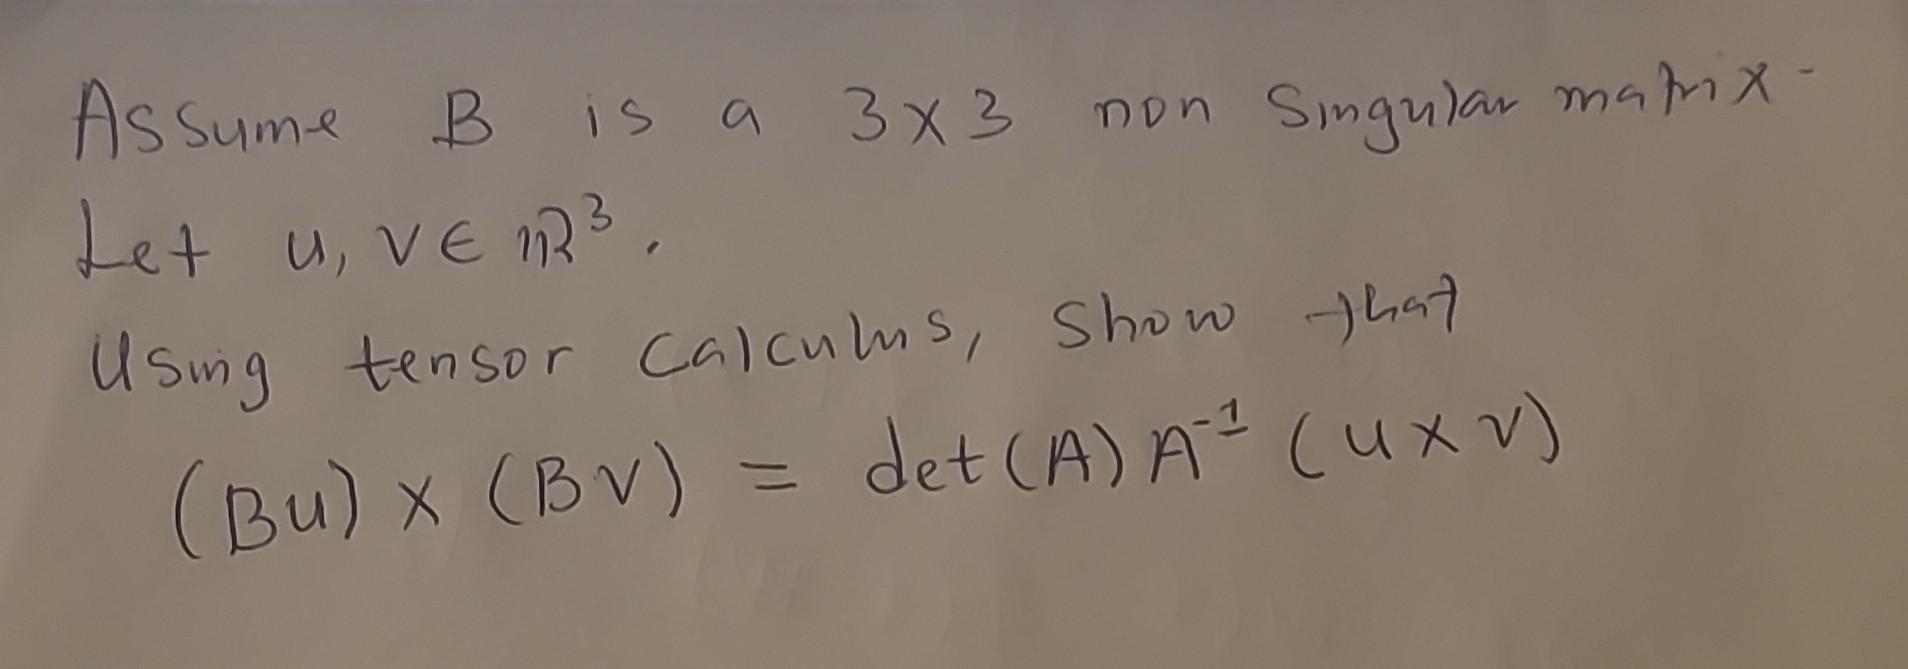 Assume B is a 3x3 non singular matrix.
Let u, v ∈ ℝ³.
Using tensor calculus, show that
(Bu) x (Bv) = det(A) A⁻¹ (u x v)